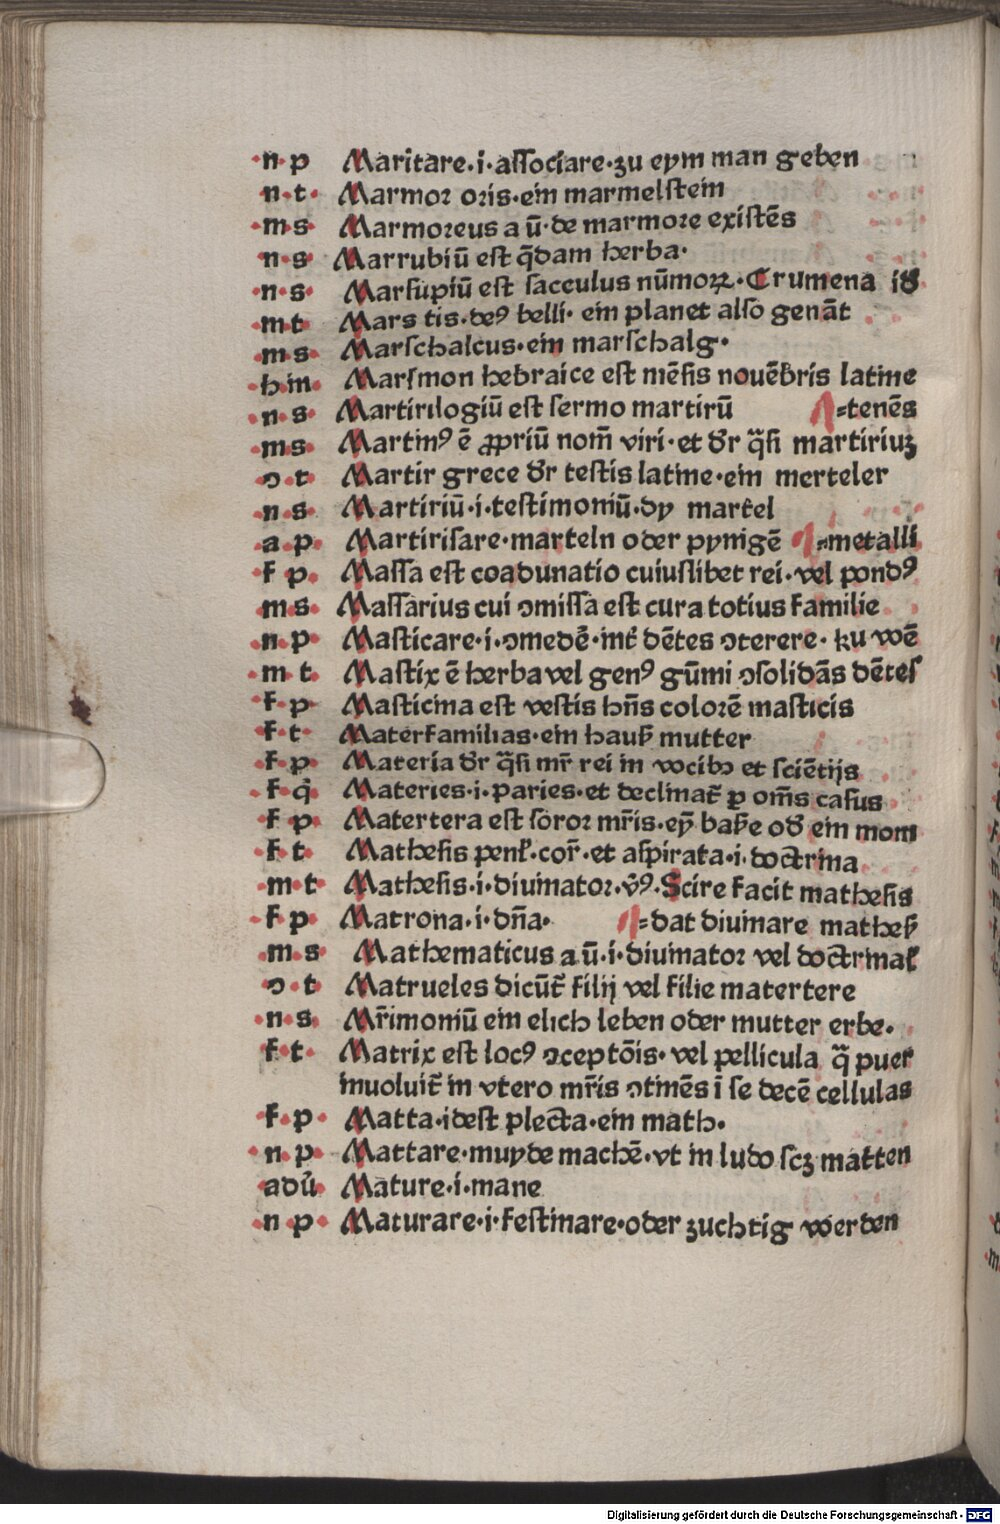 n p Maritare·i·aſſociare·zu eym man geben
n·t· Marmoꝛ oꝛis·ein marmelſtein
m·s· Marmoꝛeus a ū·de marmoꝛe exiſtēs
n·s Marrubiū eſt q̄dam herba·
n·s· Marſupiū eſt ſacculus nūmoꝝ·Crumena id̕
m t Mars tis·deꝰ belli· ein planet alſo genāt
m s· Marſchalcus·ein marſchalg·
h m· Marſmon hebraice eſt mēſis nouēbris latine
n·s· Martirilogiū eſt ſermo martirū ⸗tenēs
m s· Martinꝰ ē ꝓpriū nom̄ viri·et dr̄ qͣſi martiriuꝫ
ↄ·t· Martir grece dr̄ teſtis latine·ein merteler
n·s· Martiriū·i·teſtimoniū·dy martel
a·p· Martiriſare·marteln oder pynigē ⸗metalli
f p· Maſſa eſt coadunatio cuiuſlibet rei·vel pondꝰ
m s· Maſſarius cui ↄmiſſa eſt cura totius familie
n·p· Maſticare·i·ↄmedē·int̄ dētes ↄterere· ku wē
m·t· Maſtix ē herba vel genꝰ gūmi ↄſolidās dētes
f·p· Maſticina eſt veſtis hn̄s coloꝛē maſticis
f·t· Materfamilias·ein hauß mutter
f·p· Materia dr̄ qͣſi mr̄ rei in vocibꝫ et ſciētijs
f·q̄ Materies·i·paries·et declinat̄ ꝑ om̄s caſus
f p· Matertera eſt ſoꝛoꝛ mr̄is·eȳ baſe od̕ ein mom
f t· Matheſis penl̕·coꝛ̄·et aſpirata·i·doctrina
m·t· Matheſis·i·diuinatoꝛ·v̄ꝰ·Scire facit matheſis
f p· Matrona·i·dn̄a· ⸗dat diuinare matheß
m·s Mathematicus a ū·i·diuinatoꝛ vel doctrinal̕
ↄ·t Matrueles dicūt̄ filij vel filie matertere
n·s· Mr̄imoniū ein elich leben oder mutter erbe·
f·t· Matrix eſt locꝰ ↄceptōis·vel pellicula qͣ puer
inuoluit̄ in vtero mr̄is ↄtinēs ī ſe decē cellulas
f·p· Matta·ideſt plecta·ein math·
n·p· Mattare·muyde machē·vt in ludo ſcꝫ matten
adū· Mature·i·mane
n p· Maturare·i·feſtinare·oder zuchtig werden
Digitalisierung gefördert durch die Deutsche Forschungsgemeinschaft - DFG